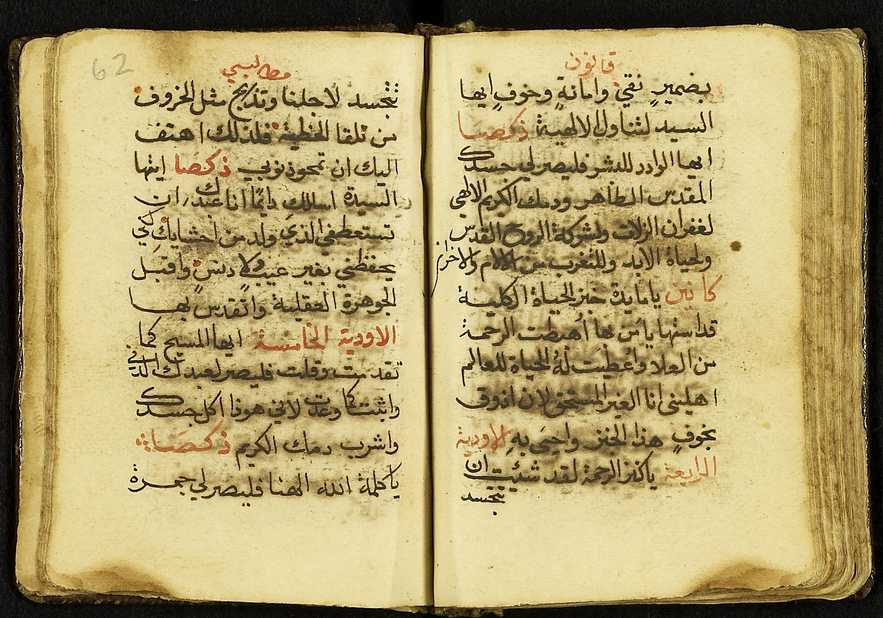 قانون
بضميرٍ نقي وامانةٍ وخوفٍ ايها
السيد لتناول الالهية ذكصا
ايها الوادد للبشر فليصر لي جسدك
المقدس الطاهر ودمك الكريم الالهي
لغفران الزلات ولشركة الروح القدس
ولحياة الابد وللتغرب من الالام والاحزان
كانين يا مايدة خبز الحياة الكلية
قداستها يا من بها أهبطت الرحمة
من العلا واعطت له الحياة للعالم
اهليني انا الغير المستحق لان اذوق
بخوفٍ هذا الخبز واحيى به الاودية
الرابعة يا كثير الرحمة لقد شئيت ان
تتجسد
62
مطالبسي
تتجسد لاجلنا وتذبح مثل الخروف
من تلقا الخطية فلذلك اهتف
اليك ان تمحو ذنوبي ذكصا ايتها
السيدة اسالك دايمًا انا عبدك ان
تستعطفي الذي ولد من احشايك لكي
يحفظني بغير عيب ولا دنس واقتبل
الجوهرة العقلية واتقدس بها
الاودية الخامسة ايها المسيح كما
تقدمت وقلت فليصر لعبدك الدني
واثبت كما وعدت لاني هوذا اكل جسدك
واشرب دمك الكريم ذكصا
يا كلمة الله الهنا فليصر لي جمرة